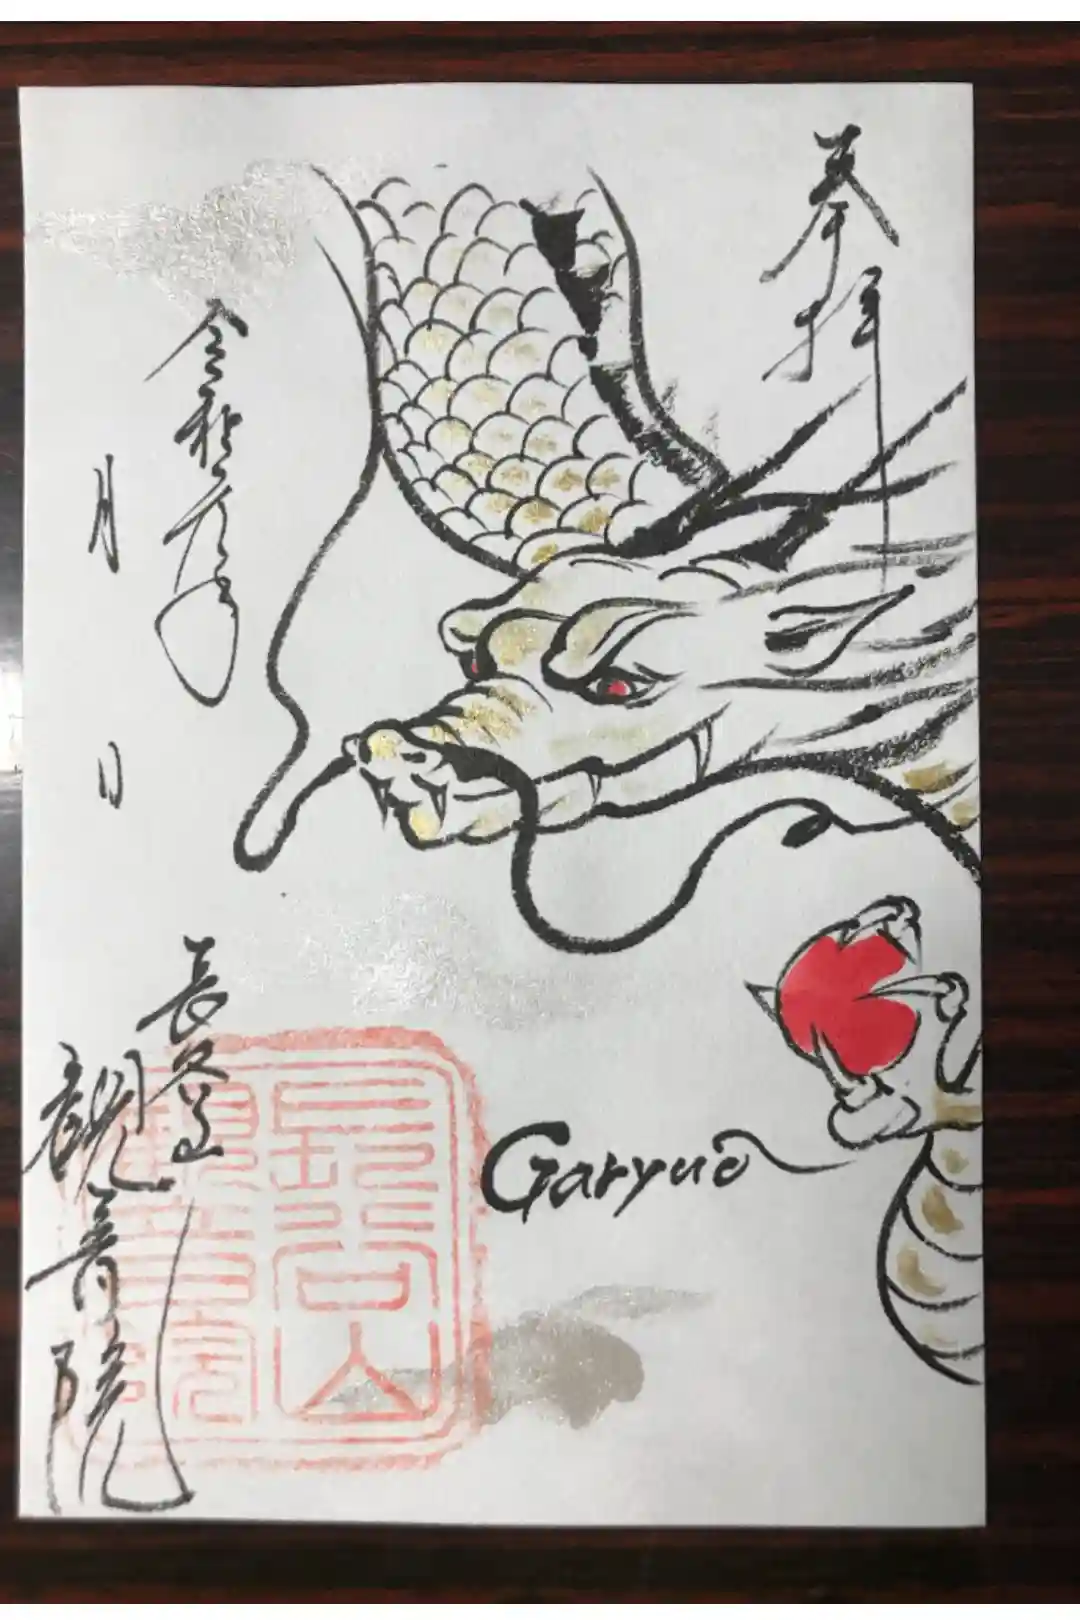 奉拝
令和元年
月
日
長谷山
観音院
Garyuo